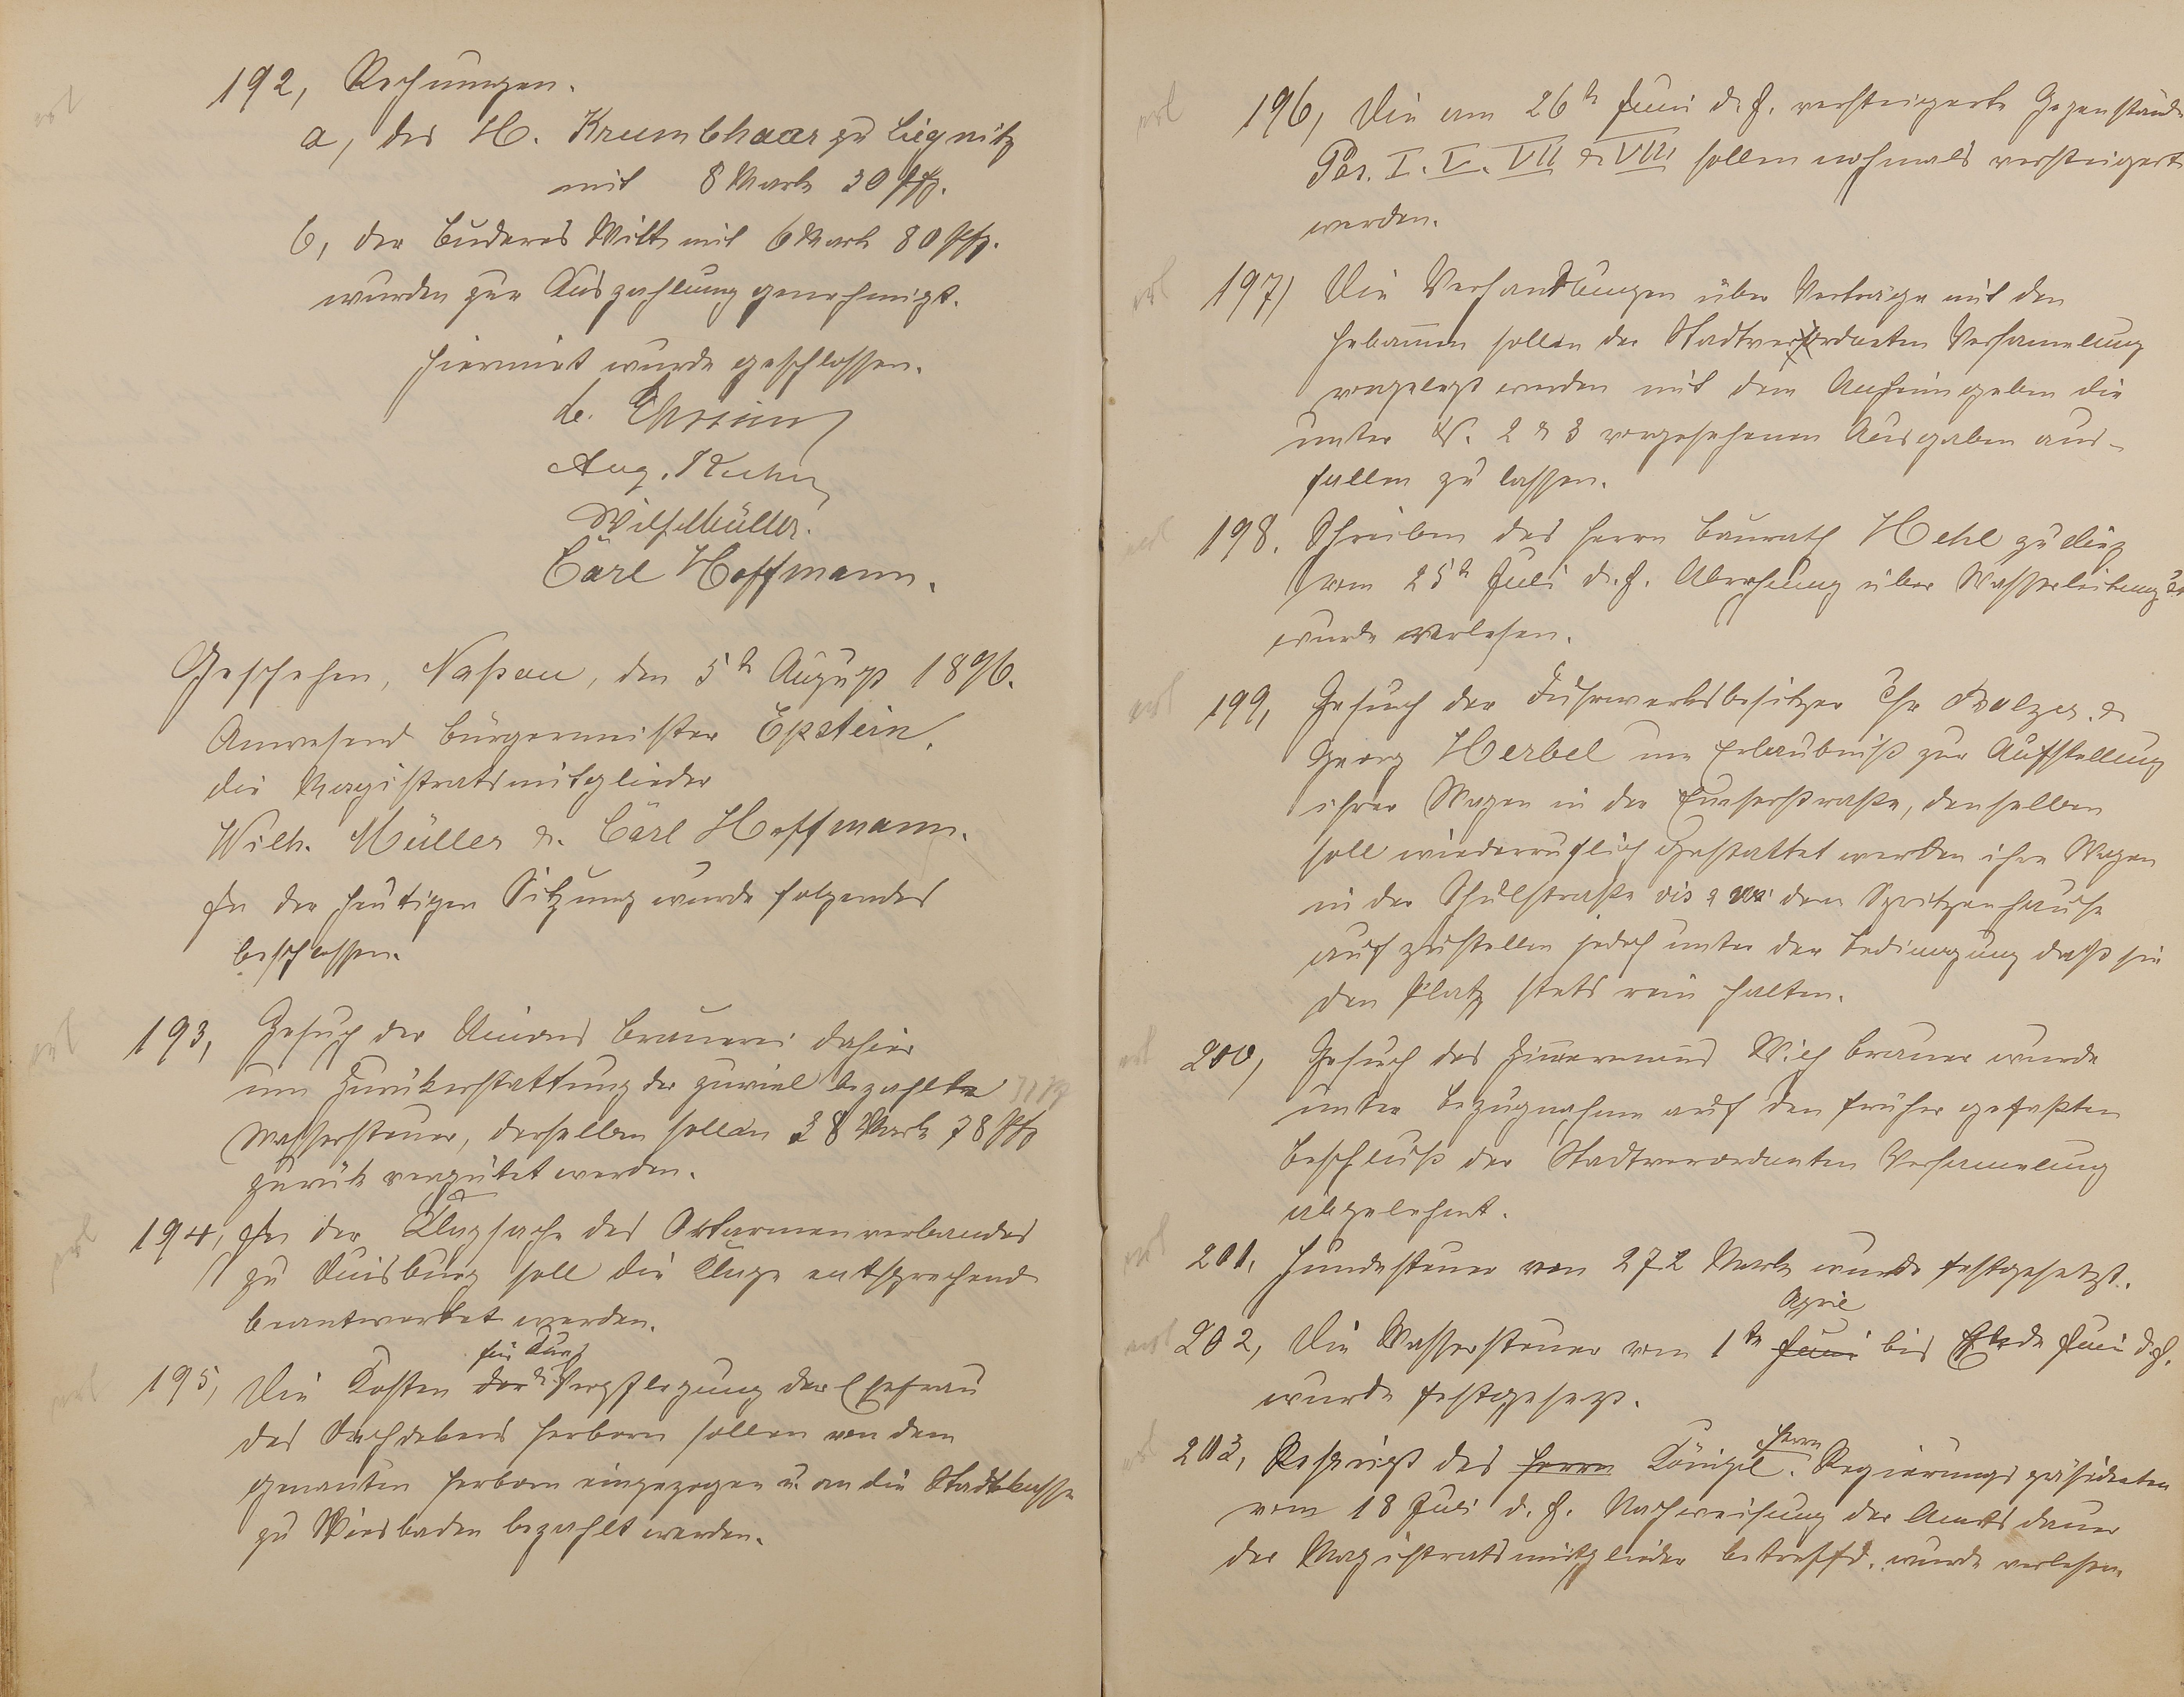 192, Rechnungen.
a, des H. Krumbhaar zu Liegnitz
mit 8 Mark 30 Pfg.
b, der Buderus Witt mit 6 Mark 80 Pfg.
wurden zur Auszahlung genehmigt.
Hiermit wurde geschlossen.
Aug. Kuhn
Wilh. Müller.
Carl Hoffmann.
Geschehen, Naßau, den 5ten August 1896.
Anwesend Bürgermeister Epstein.
die Magistratsmitglieder
Wilh. Müller u. Carl Hoffmann.
In der heutigen Sitzung wurde folgendes
beschlossen.
193, Gesuch der Unions Brauerei dahier
um Zurükerstattung der zuviel bezahlte
Wassersteuer, derselben sollen 38 Mark 78 Pfg
zurük vergütet werden.
194, In der Klagsache des Ortsarmenverbandes
zu Duisburg soll die Klage entsprechend
beantwortet werden.
für Kur
195, Die Kosten der u. Verpflegung der Ehefrau
des Dachdekers Herborn sollen von dem
genanten Herborn eingezogen u. an die Stadtkasse
zu Wiesbaden bezahlt werden.
196, Die am 26ten Juni d. J. versteigerte Gegenstände
Pos. I. V. VII & VIII sollen nochmals versteigert
werden.
197) Die Verhandlungen über Verträge mit den
Hebammen sollen der Stadtverordneten Versammlung
vorgelegt werden mit dem Anheimgeben die
unter N. 2 & 3 vorgesehenen Ausgaben aus-
fallen zu lassen.
198. Schreiben des Herrn Baurath Hehl zu Diez
vom 25ten Juli d. J. Abrechnung über Wasserleitung
wurde verlesen.
199, Gesuch der Fuhrwerksbesitzer Chr Balzer &
Georg Herbel um Erlaubniß zur Aufstellung
ihrer Wagen in der Emserstraße, denselben
soll wiederruflich gestattet werden ihre Wagen
in der Schulstraße vis a vis dem Spritzenhause
auf zustellen jedoch unter der Bedingung daß sie
den Platz stets rein halten.
200, Gesuch des Zimermans Wilh Braun wurde
unter Bezugnahme auf den früher gefaßten
Beschluß der Stadtverordneten Versammlung
abgelehnt.
201, Hundesteuer von 272 Mark wurde festgesetzt.
April
202, Die Wassersteuer vom 1ten Juni bis Ende Juni d. J.
wurde festgesetzt.
Herrn
203, Rescript des Herrn Königl. Regierungspräsidenten
vom 18 Juli d. J. Nachweisung der Amtsdauer
der Magistratsmitglieder betreffd. wurde verlesen